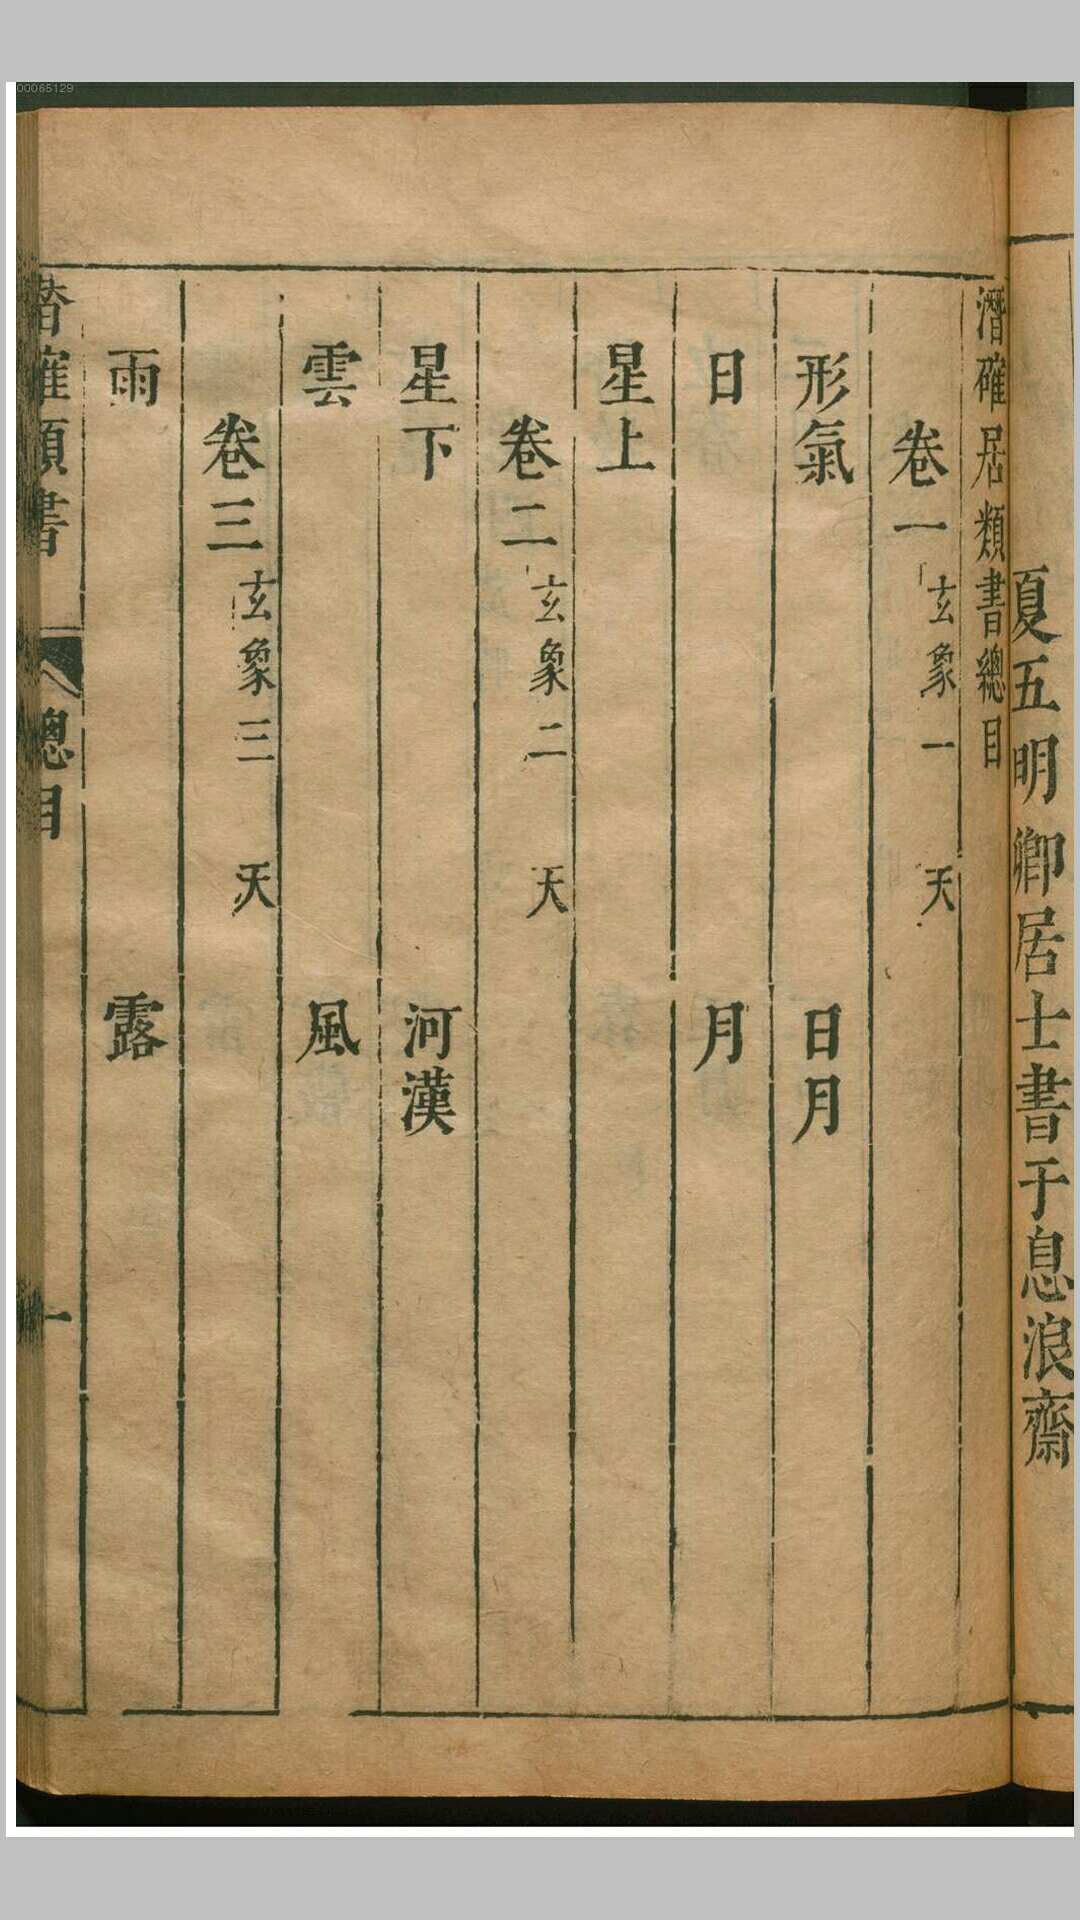 00065129
夏五明卿居士書于息浪齋
潛確居類書總目
卷一 玄象一 天
形氣 日月
日 月
星上
卷二 玄象二 天
星下 河漢
雲 風
卷三 玄象三 天
雨 露
潛確類書 總目 一